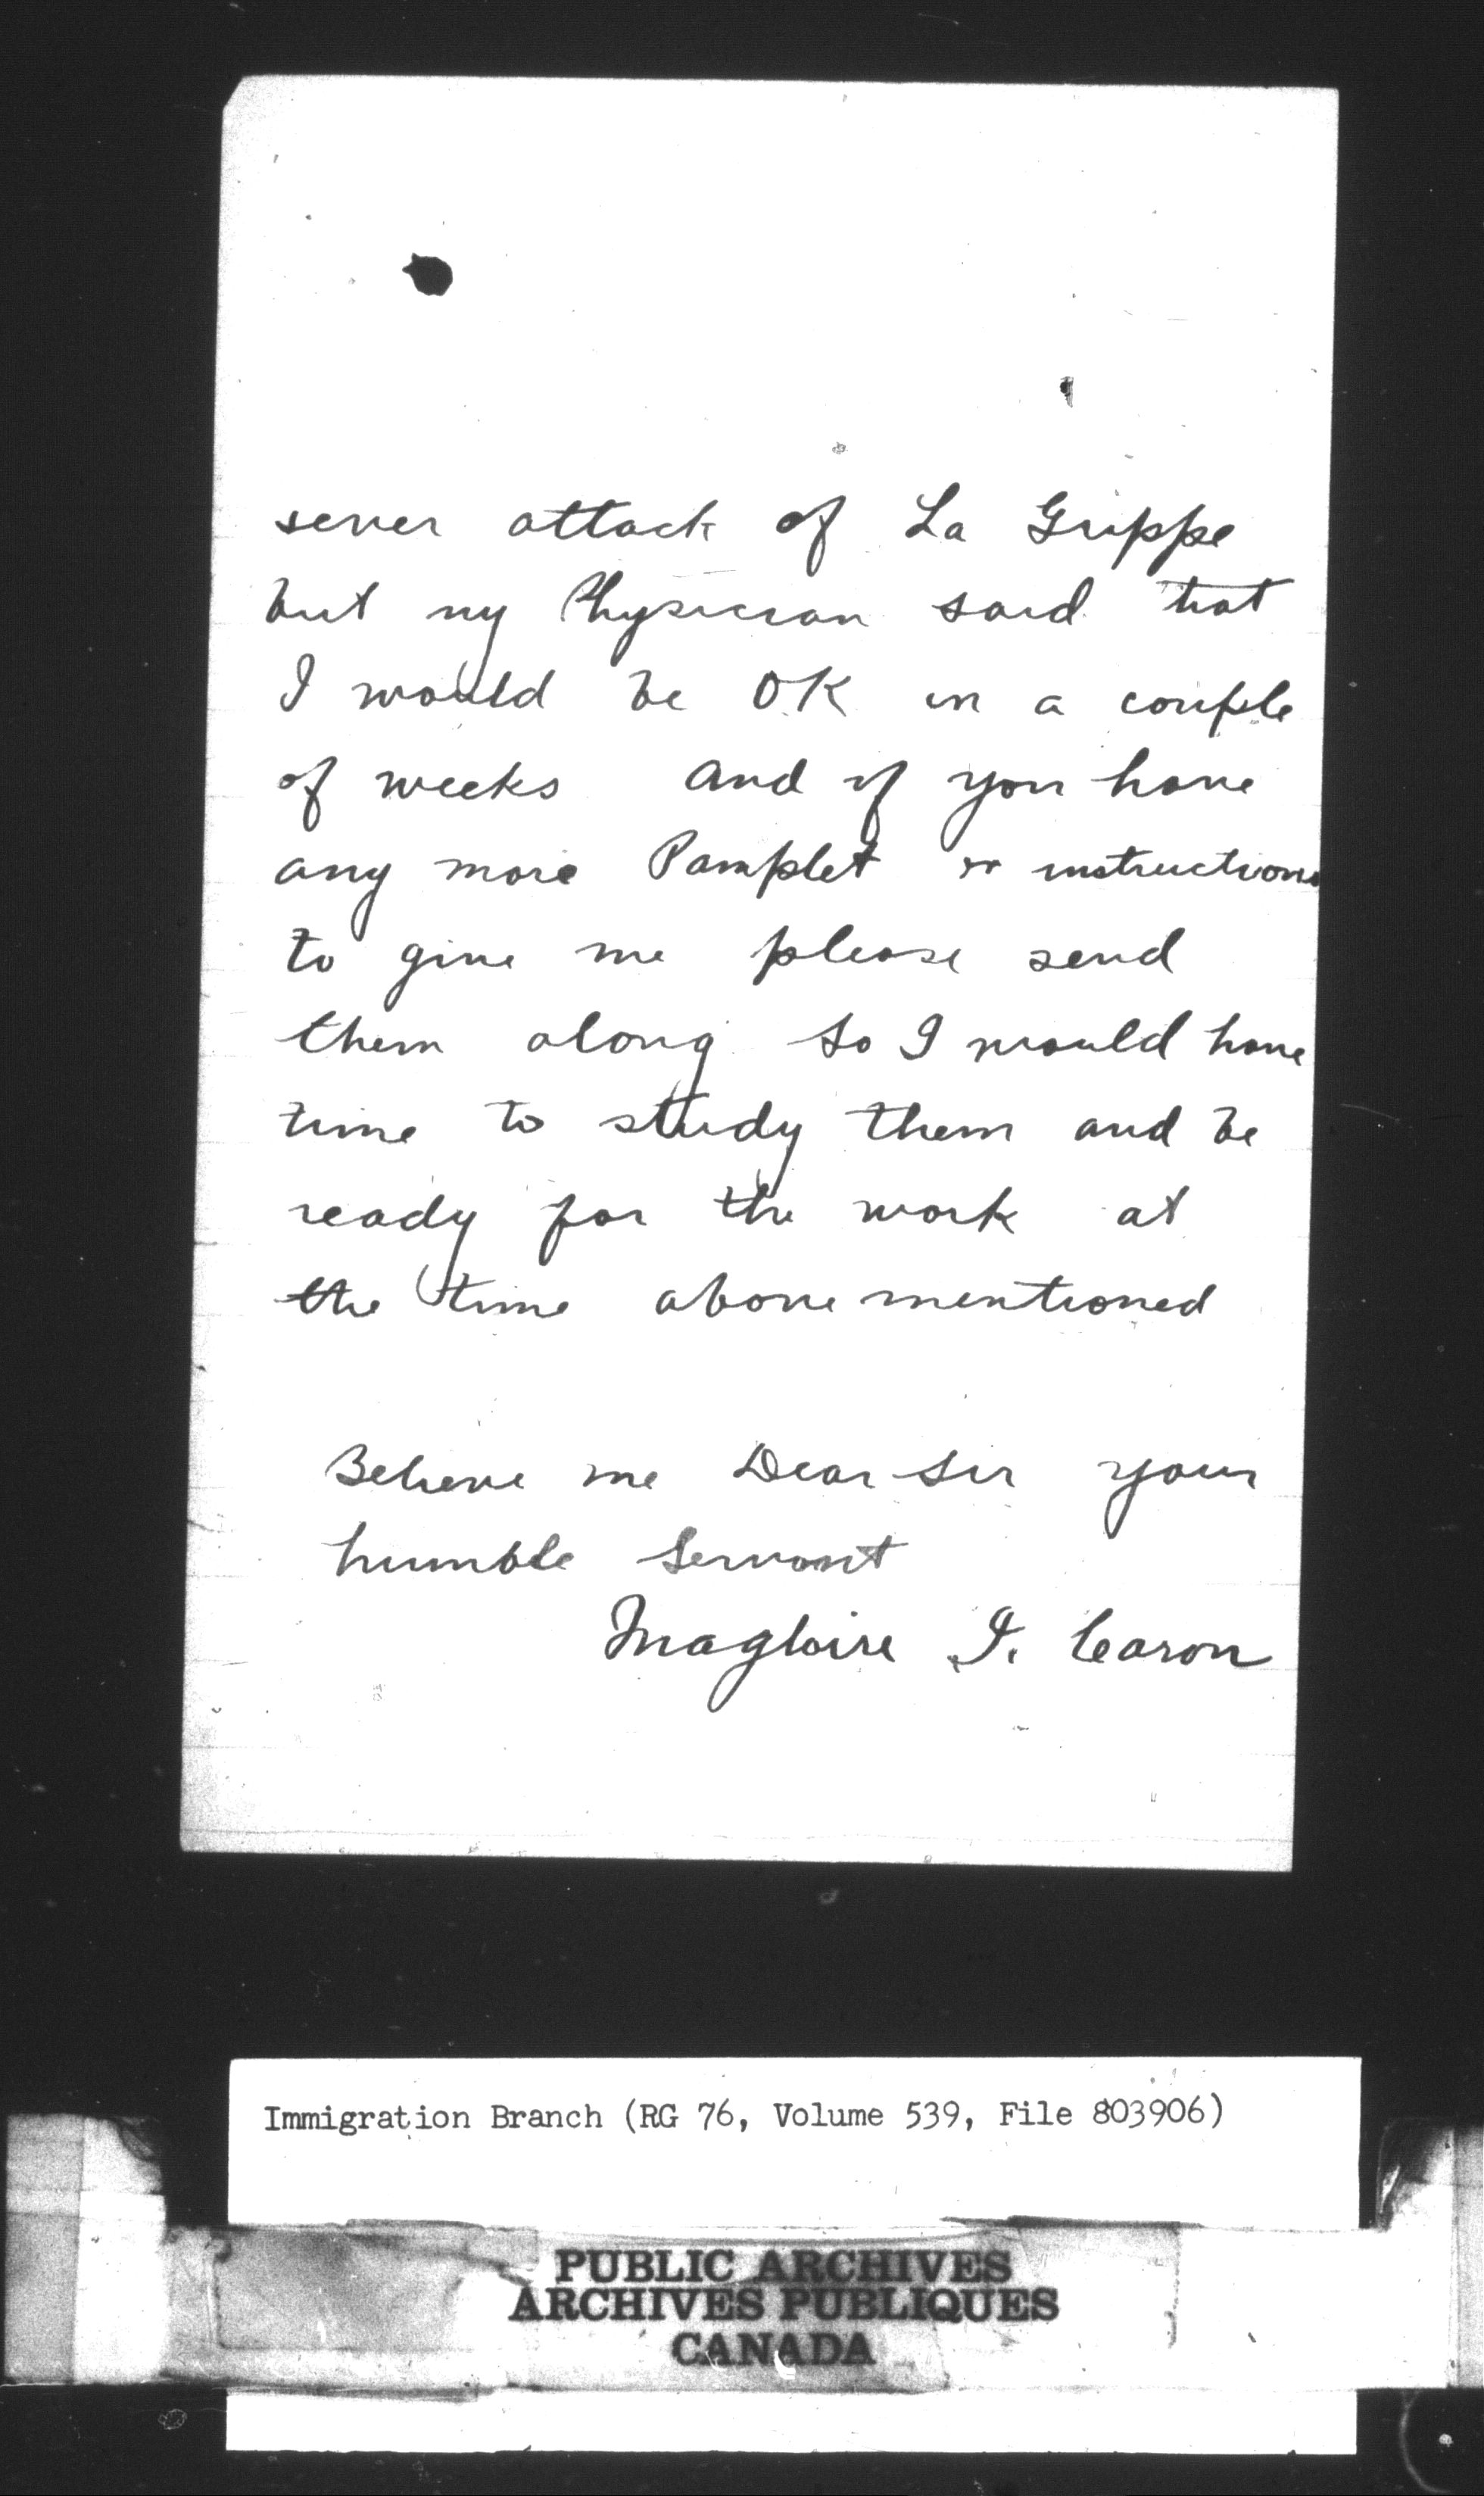 sever attack of La Grippe
but my Physician said that
I would be OK in a couple
of weeks and if you have
any more Pamplet or instructions
to give me please send
them along so I would have
time to study them and be
ready for the work at
the time above mentioned
Believe me Dear Sir your
humble Servant
Magloire I. Caron
Immigration Branch (RG 76, Volume 539, File 803906)
PUBLIC ARCHIVES
ARCHIVES PUBLIQUES
CANADA